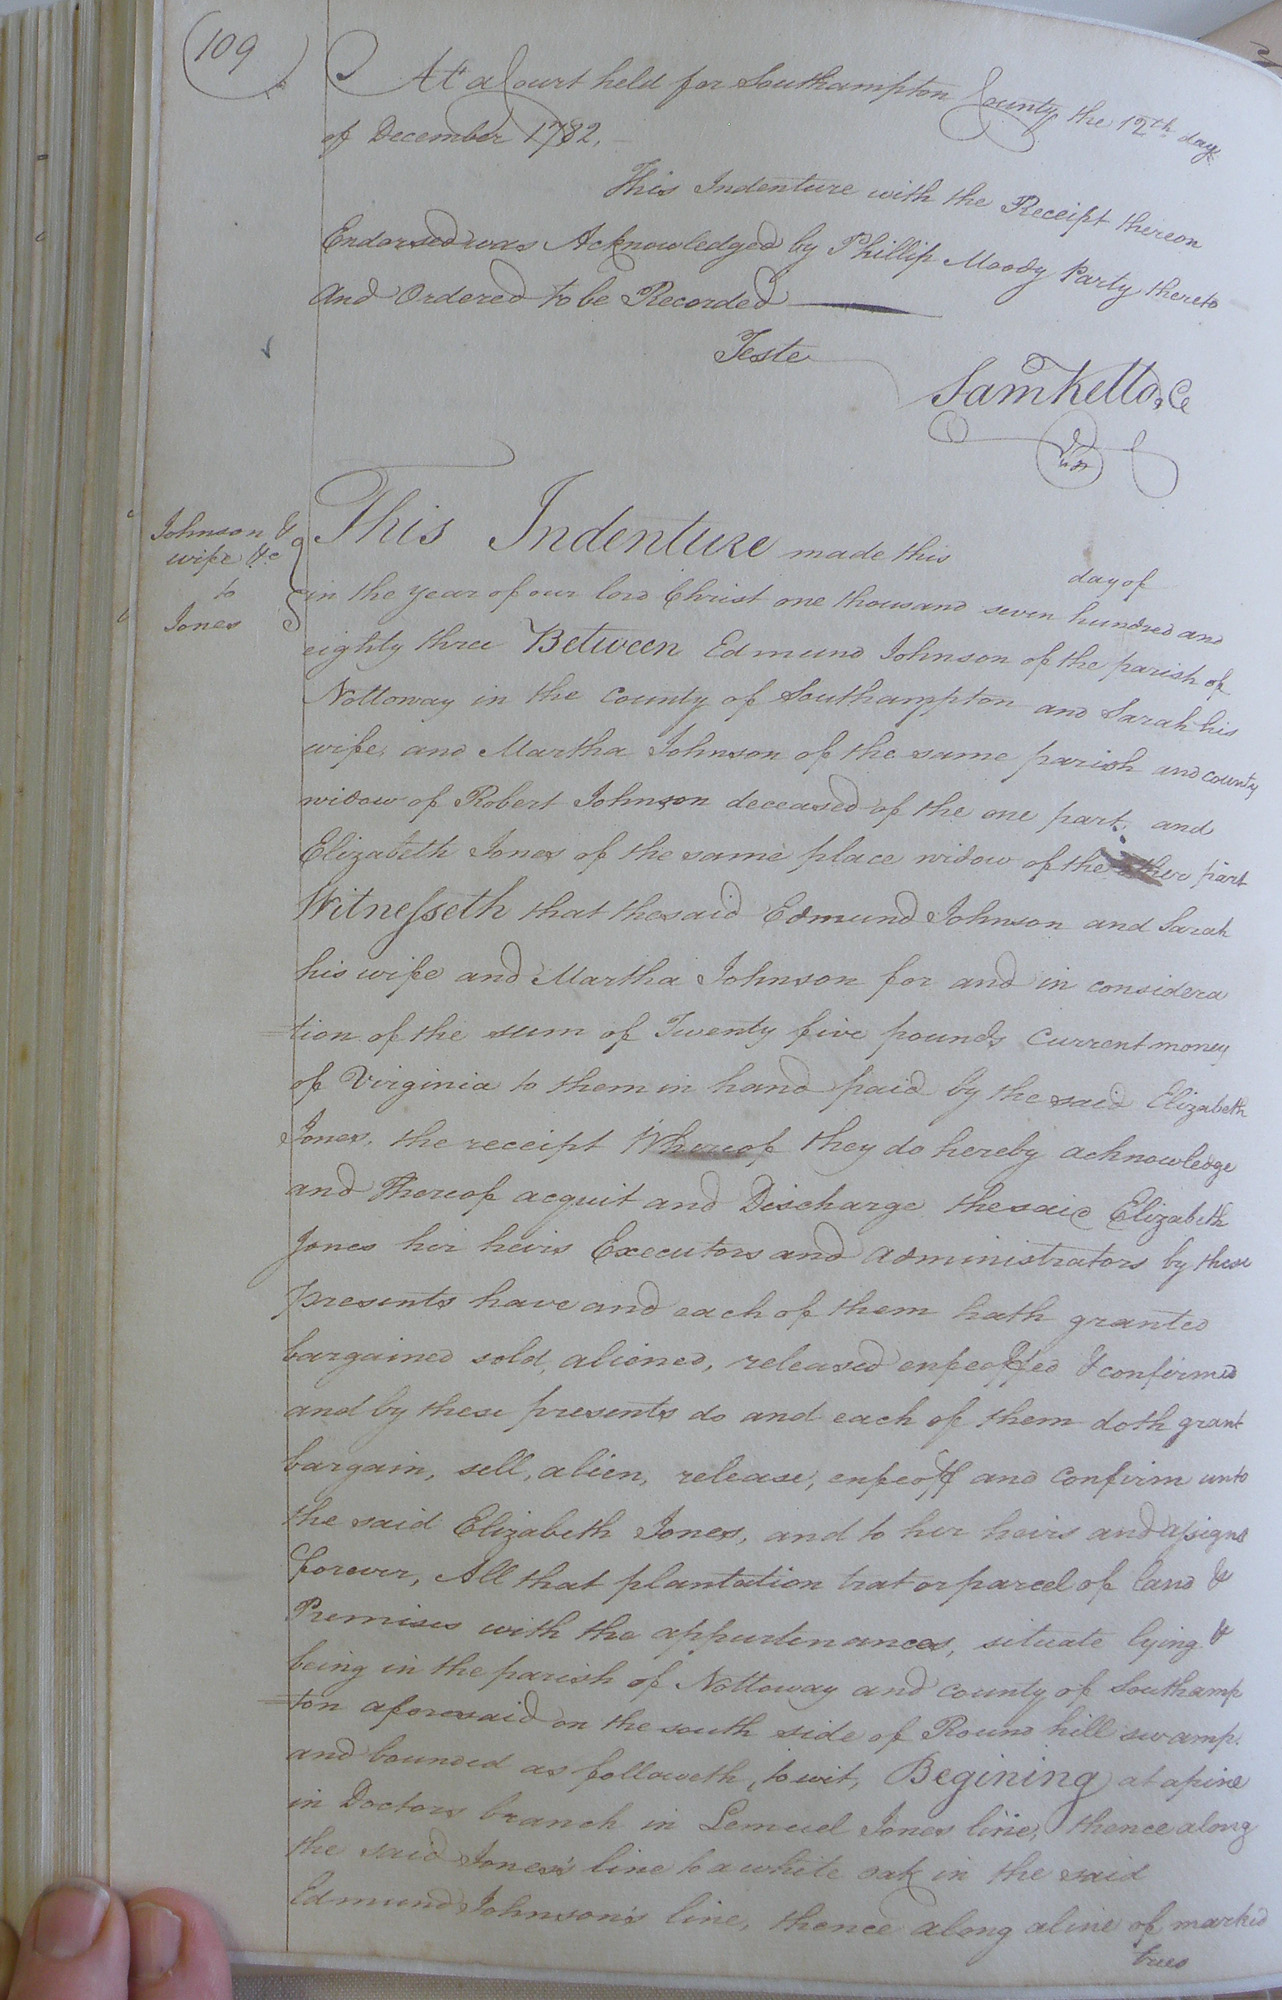 109
At a Court held for Southampton County the 12th day
of December 1782.
This Indenture with the Receipt thereon
Endorsed was Acknowledged by Phillip Moody Party thereto
And Ordered to be Recorded
Teste
Sam Kello, Ce
Johnson &
wife &c
to
Jones
This Indenture made this day of
in the year of our lord Christ one thousand seven hundred and
eighty three Between Edmund Johnson of the parish of
Nottoway in the county of Southampton and Sarah his
wife, and Martha Johnson of the same parish and county
widow of Robert Johnson deceased of the one part, and
Elizabeth Jones of the same place widow of the other part
Witnesseth that the said Edmund Johnson and Sarah
his wife and Martha Johnson for and in considera
tion of the sum of Twenty five pounds Current money
of Virginia to them in hand paid by the said Elizabeth
Jones, the receipt Whereof they do hereby acknowledge
and Thereof acquit and Discharge the said Elizabeth
Jones her heirs Executors and administrators by these
Presents have and each of them hath granted
bargained sold, aliened, released enfeoffed & confirmed
and by these presents do and each of them doth grant
bargain, sell, alien, release, enfeoff and confirm unto
the said Elizabeth Jones, and to her heirs and assigns
forever, All that plantation trat or parcel of land &
Premises with the appurtenances, situate lying &
being in the parish of Nottoway and county of Southamp
ton aforesaid on the south side of Round hill swamp.
and bounded as followeth, to wit, Begining at a pine
in Doctors branch in Lemuel Jones line, thence along
the said Jones's line to a white oak in the said
Edmund Johnson's line, thence along a line of mark'd
trees